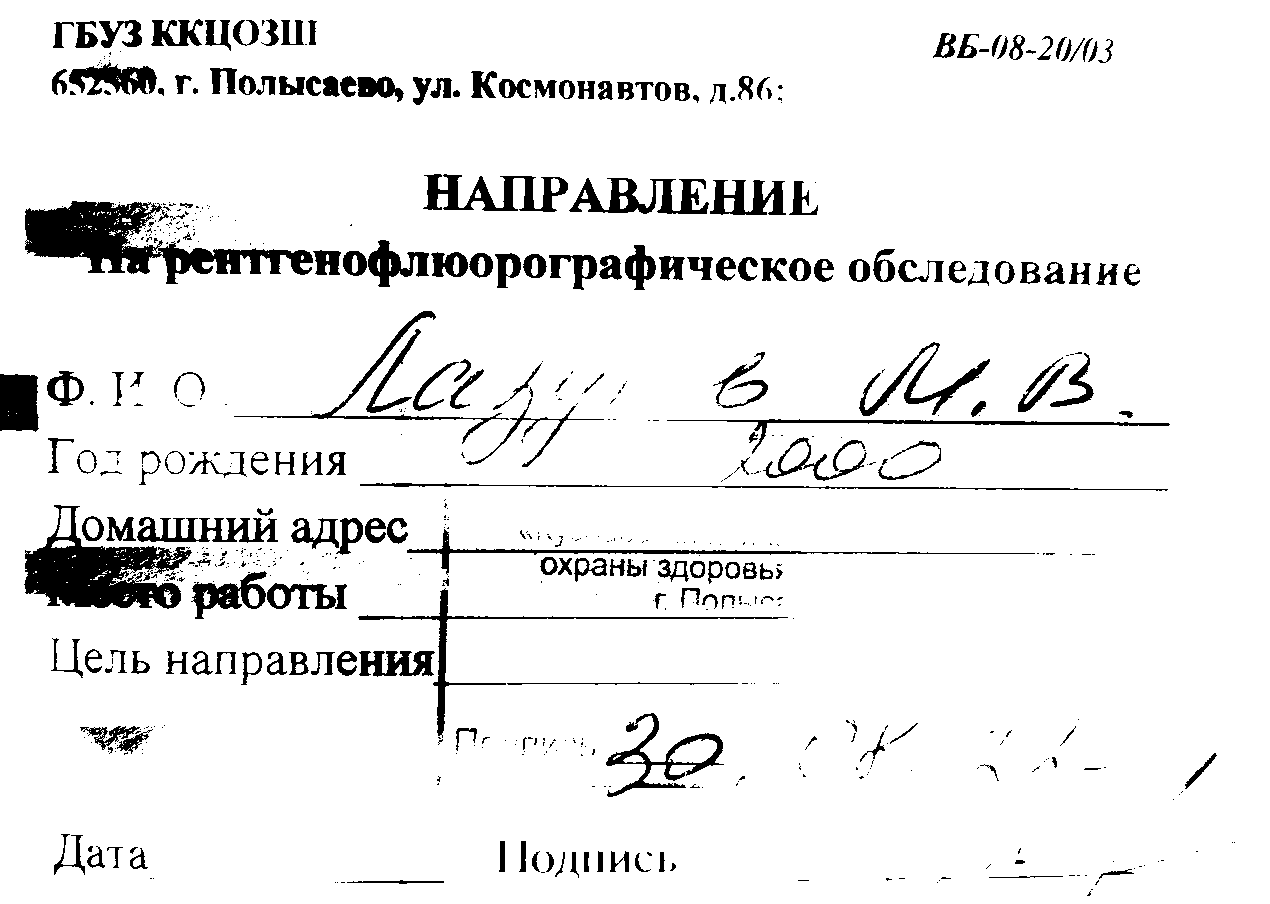 ГБУЗ ККЦОЗШ
ВБ-08-20/03
652560, г. Полысаево, ул. Космонавтов, д.86;
НАПРАВЛЕНИЕ
На рентгенофлюорографическое обследование
Ф. И. О. М. В.
Год рождения 2000
Домашний адрес
охраны здоровья
Место работы
г. Полыса
Цель направления
Подпись 30.
Дата Подпись